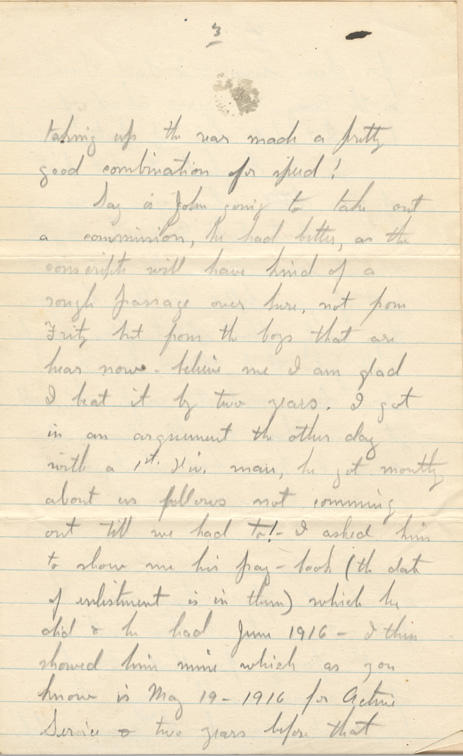 3
taking up the rear made a pretty
good combination for speed!
Say is John going to take out
a commission, he had better, as the
conscripts will have kind of a
rough passage over here, not from
Fritz but from the boys that are
hear now - believe me I am glad
I beat it by two years. I got
in an argument the other day
with a 1st. Div. man, he got mouthy
about us fellows not comming
out till we had to! - I asked him
to show me his pay-book (the date
of enlistment is in them) which he
did & he had June 1916 - I then
showed him mine which as you
know is May 19 - 1916 for Active
Service & two years before that